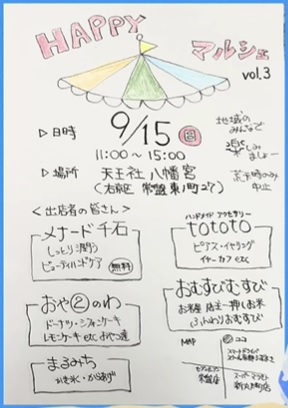 HAPPY
マルシェ
vol.3
▷日時 9/15㊐
11:00〜15:00
地域の
みんなで
楽しみ
ましょー
▷場所 天王社 八幡宮
(右京区 常盤 東ノ町27)
荒天時のみ
中止
<出店者の皆さん>
メナード千石
しっとり潤う
ビューティハンドケア
無料
ハンドメイド アクセサリー
tototo
ピアス・イヤリング
イヤーカフ etc
おや②のわ
ドーナツ・シフォンケーキ
レモンケーキ etc おやつ達
おむすびむすび
お米屋 店主一押しお米
ふんわりおむすび
まるみち
かき氷・からあげ
MAP
ココ
セブンイレブン
常盤店
スーパーマツモト
新丸太町店